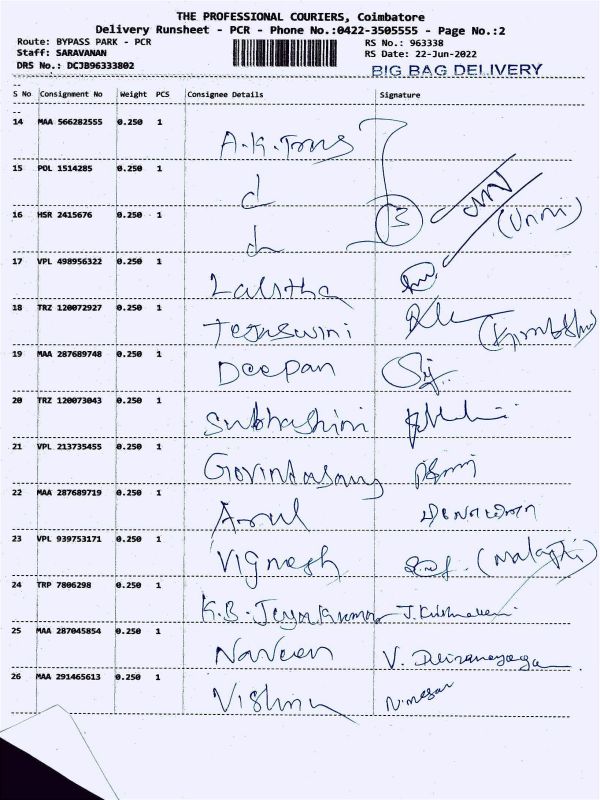 THE PROFESSIONAL COURIERS, Coimbatore
Delivery Runsheet - PCR - Phone No.:0422-3505555 - Page No.:2
Route: BYPASS PARK - PCR RS No.: 963338
Staff: SARAVANAN RS Date: 22-Jun-2022
DRS No.: DCJB96333802 BIG BAG DELIVERY
S No Consignment No Weight PCS Consignee Details Signature
14 MAA 566282555 0.250 1 A.K.
15 POL 1514285 0.250 1 d
16 HSR 2415676 0.250 1 d 13 (Unni)
17 VPL 498956322 0.250 1 Lalitha
18 TRZ 120072927 0.250 1 Tejaswini
19 MAA 287689748 0.250 1 Deepan
20 TRZ 120073043 0.250 1 Subhashini
21 VPL 213735455 0.250 1 Govindasamy
22 MAA 287689719 0.250 1 Arul
23 VPL 939753171 0.250 1 Vignesh
24 TRP 7806298 0.250 1 K.B. Jeyakumar J.
25 MAA 287045854 0.250 1 Naveen V.
26 MAA 291465613 0.250 1 Vishnu